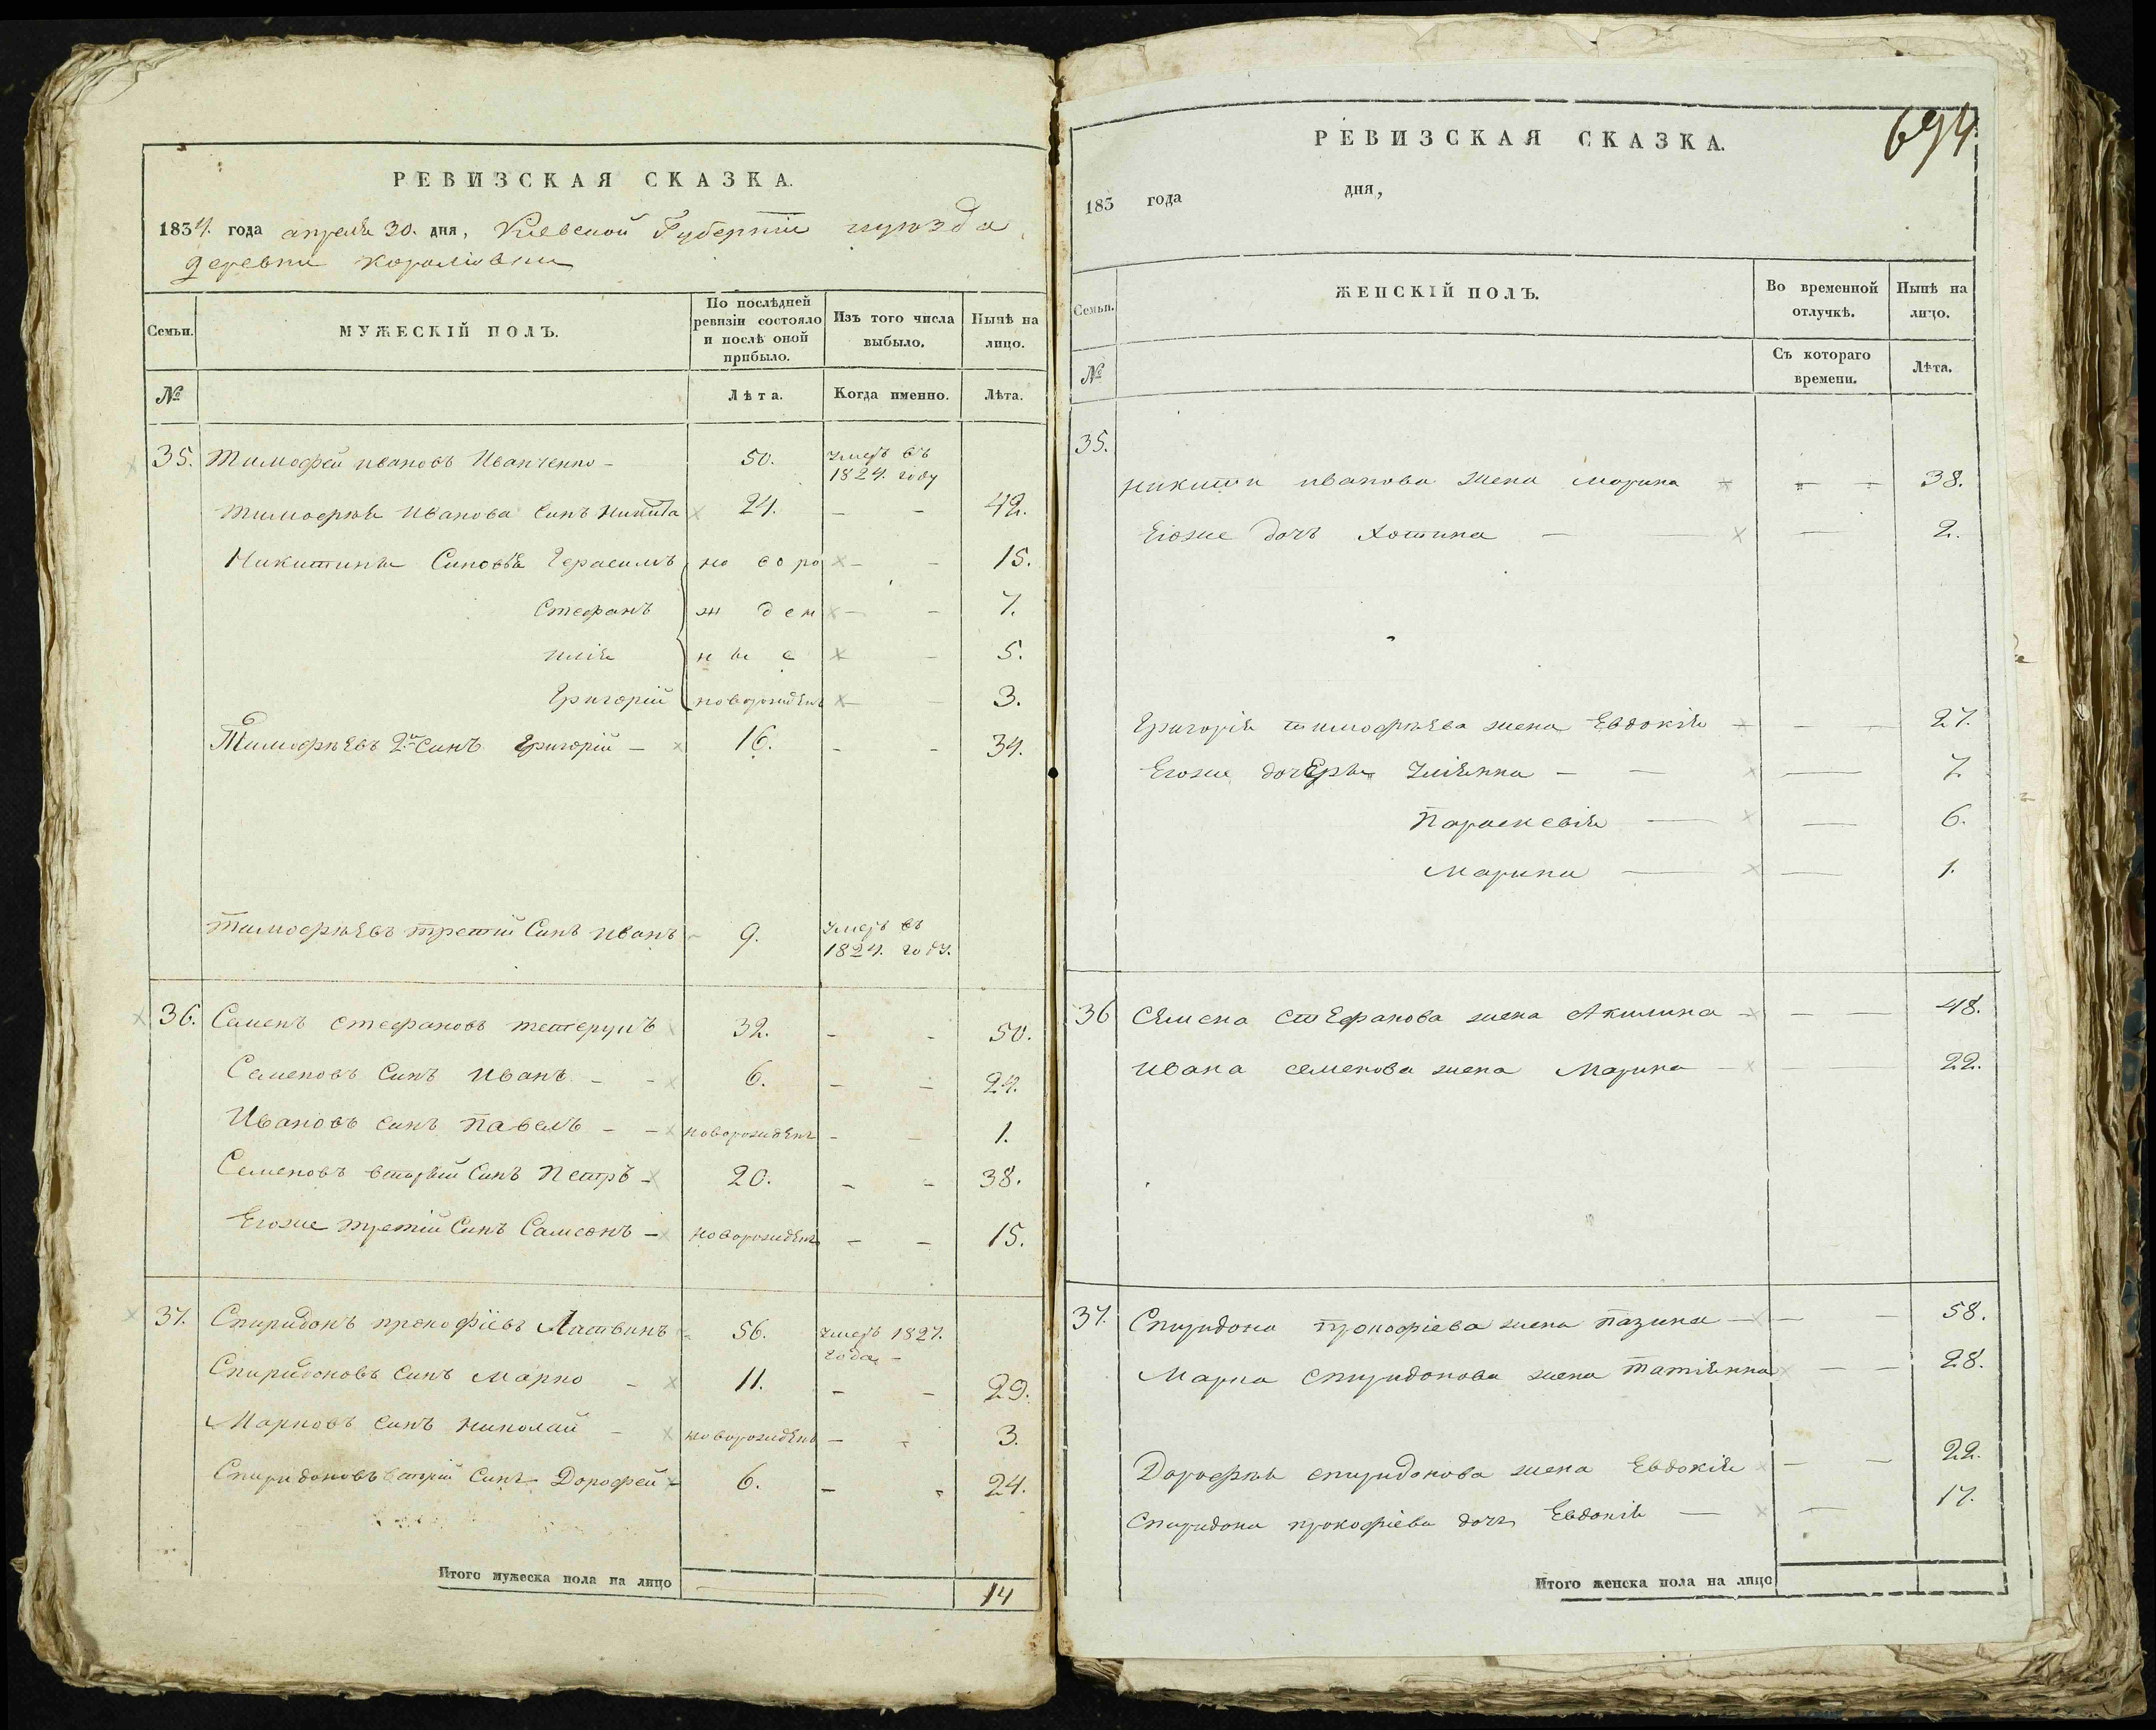 РЕВИЗСКАЯ СКАЗКА.
1834. года апреля 30. дня, Киевской Губернии
деревни королiовки
Семьи.
МУЖЕСКІЙ ПОЛЪ.
По послѣдней ревизіи состояло и послѣ оной прибыло.
Изъ того числа выбыло.
Нынѣ на лицо.
№
Лѣта.
Когда именно.
Лѣта.
35. Тимофей ивановъ Иванченко - 50. умеръ въ 1824. году
тимофея Иванова Синъ Никита 24. - - 42.
Никитины Синовья Герасимъ но во ро - - 15.
Стефанъ ж ден - - 7.
илія н ы е - 5.
Григорій новорожденъ - - 3.
Тимофѣевъ 2й синъ Григорій - 16. - - 34.
тимофѣевъ третій Синъ иванъ 9. умеръ въ 1824. году.
36. Семенъ стефановъ тетерукъ 32. - - 50.
Семеновъ Синъ Иванъ - - 6. - - 24.
Ивановъ синъ павелъ - - новорожденъ - - 1.
Семеновъ вторый Синъ Петръ - 20. - - 38.
Егоже третій Синъ Самсонъ - новорожденъ - - 15.
37. Спиридонъ прокофіевъ Литвинъ 56. умеръ 1827. года -
Спиридоновъ Синъ Марко - 11. - - 29.
Марковъ синъ николай - новорожденъ - - 3.
Спиридоновъ вторій Синъ Дорофей - 6. - - 24.
Итого мужеска пола на лицо 14
694
РЕВИЗСКАЯ СКАЗКА.
183 года дня,
Семьи.
ЖЕНСКІЙ ПОЛЪ.
Во временной отлучкѣ.
Нынѣ на лицо.
№
Съ котораго времени.
Лѣта.
35.
никити иванова жена марина - - 38.
Егоже дочъ Хотина - - 2.
Григорія тимофѣева жена Евдокія - - 27.
Егоже дочеры Улiянна - - 7.
Параскевія - - 6.
Марина - - 1.
36 Семена стефанова жена Акилина - - 48.
ивана семенова жена Марина - 22.
37. Спиридона прокофіева жена пазина - - 58.
Марка спиридонова жена татіянна - - 28.
Дорофѣя спиридонова жена Евдокія - - 22.
Спиридона прокофіева дочъ Евдокія - - 17.
Итого женска пола на лицо